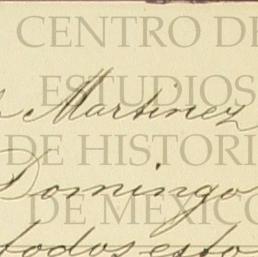 CENTRO DE
ESTUDIOS
Martinez
DE HISTORI
Domingo
DE MEXICO
todos esto